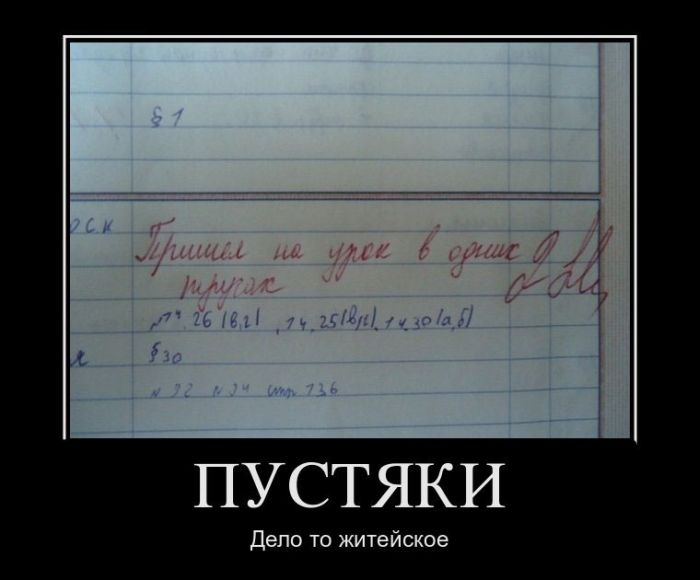 § 1
оск
Пришел на урок в одних
трусах
№14.26 (в,г), 14.25(в,г), 14.30(а,б)
я § 30
№ 32 № 34 стр 136
ПУСТЯКИ
Дело то житейское